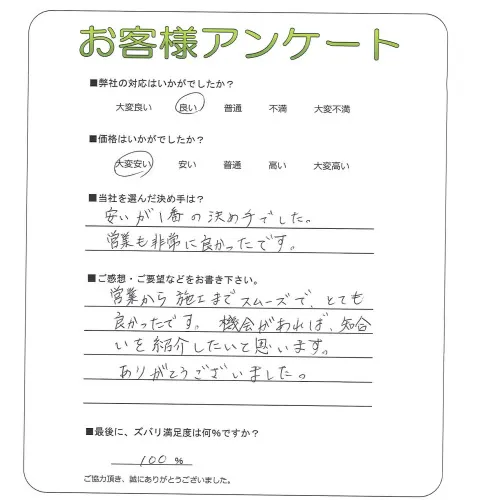 お客様アンケート
■弊社の対応はいかがでしたか？
大変良い 良い 普通 不満 大変不満
■価格はいかがでしたか？
大変安い 安い 普通 高い 大変高い
■当社を選んだ決め手は？
安いが1番の決め手でした。
営業も非常に良かったです。
■ご感想・ご要望などをお書き下さい。
営業から施工までスムーズで、とても
良かったです。機会があれば、知合
いを紹介したいと思います。
ありがとうございました。
■最後に、ズバリ満足度は何%ですか？
100 %
ご協力頂き、誠にありがとうございました。